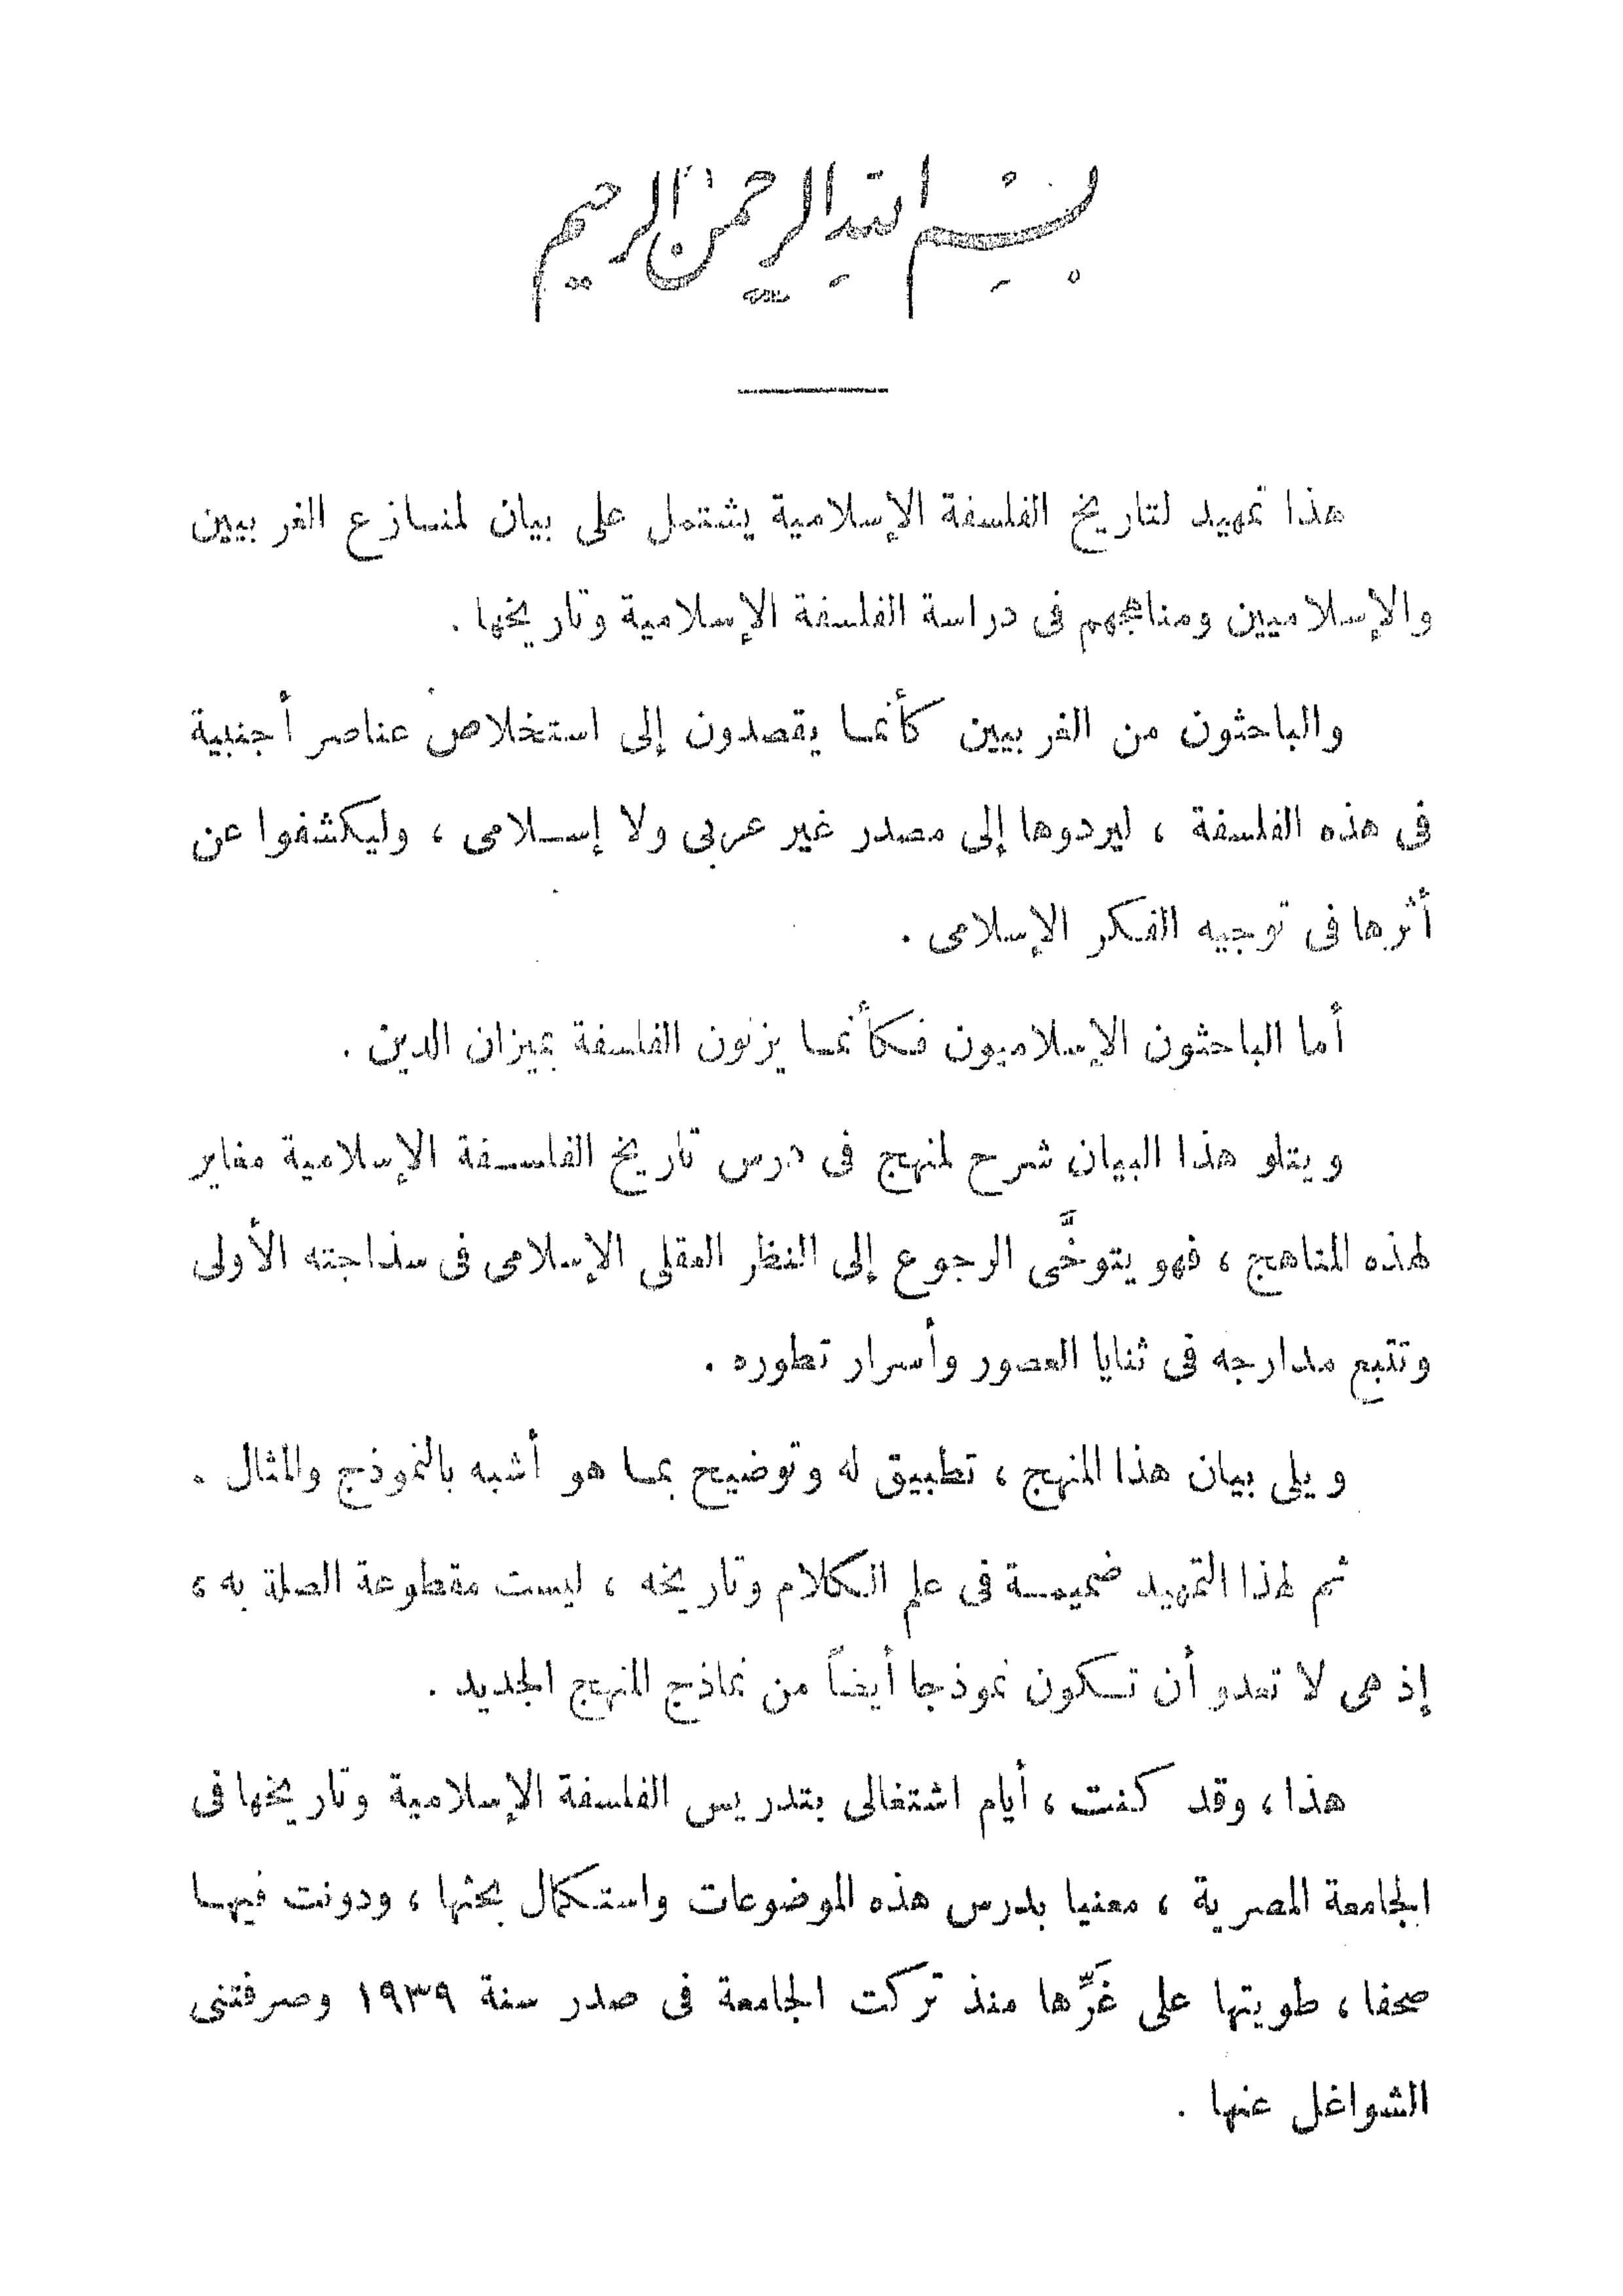 بسم الله الرحمن الرحيم
هذا تمهيد لتاريخ الفلسفة الإسلامية يشتمل على بيان لمنازع الغربيين
والإسلاميين ومناهجهم فى دراسة الفلسفة الإسلامية وتاريخها .
والباحثون من الغربيين كأنما يقصدون إلى استخلاص عناصر أجنبية
فى هذه الفلسفة ، ليردوها إلى مصدر غير عربى ولا إسلامى ، وليكشفوا عن
أثرها فى توجيه الفكر الإسلامى .
أما الباحثون الإسلاميون فكأنما يزنون الفلسفة بميزان الدين .
ويتلو هذا البيان شرح لمنهج فى درس تاريخ الفلسفة الإسلامية مغاير
لهذه المناهج ، فهو يتوخَّى الرجوع إلى النظر العقلى الإسلامى فى سذاجته الأولى
وتتبع مدارجه فى ثنايا العصور وأسرار تطوره .
ويلى بيان هذا المنهج ، تطبيق له وتوضيح بما هو أشبه بالنموذج والمثال .
ثم لهذا التمهيد ضميمة فى علم الكلام وتاريخه ، ليست مقطوعة الصلة به ،
إذ هى لا تعدو أن تكون نموذجا أيضاً من نماذج المنهج الجديد .
هذا ، وقد كنت ، أيام اشتغالى بتدريس الفلسفة الإسلامية وتاريخها فى
الجامعة المصرية ، معنيا بدرس هذه الموضوعات واستكمال بحثها ، ودونت فيها
صحفا ، طويتها على غَرِّها منذ تركت الجامعة فى صدر سنة ١٩٣٩ وصرفتنى
الشواغل عنها .